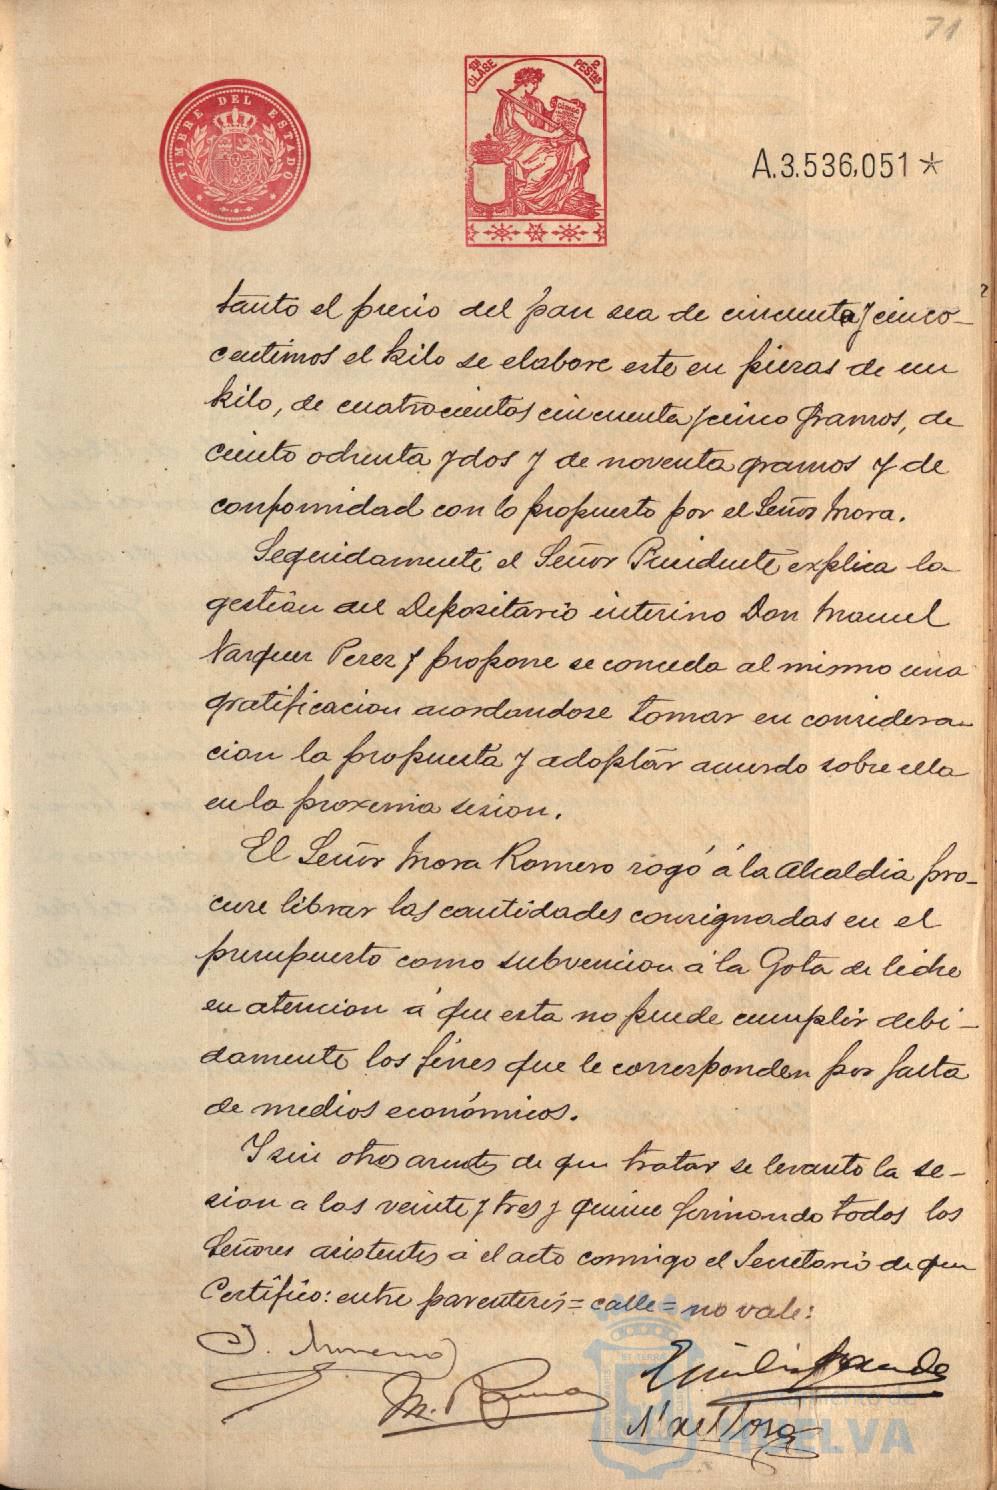 71
TIMBRE DEL ESTADO
10ª CLASE 2 PESTAS
A.3.536,051*
tanto el precio del pan sea de cincuenta y cinco
centimos el kilo se elabore este en piezas de un
kilo, de cuatrocientos cincuenta y cinco gramos, de
ciento ochenta y dos y de noventa gramos y de
conformidad con lo propuesto por el Señor Mora.
Seguidamente el Señor Presidente explica la
gestión del Depositario interino Don Manuel
Vazquez Perez y propone se conceda al mismo una
gratificacion acordandose tomar en considera-
cion la propuesta y adoptar acuerdo sobre ella
en la proxima sesion.
El Señor Mora Romero rogó á la Alcaldia pro-
cure librar las cantidades consignadas en el
presupuesto como subvencion á la Gota de leche
en atencion á que esta no puede cumplir debi-
damente los fines que le corresponden por falta
de medios económicos.
Y sin otros asuntos de que tratar se levantó la se-
sion a las veinte y tres y quince firmando todos los
Señores asistentes á el acto conmigo el Secretario de que
Certifico: entre parentesis = calle = no vale:
J. Moreno
M.
Ayuntamiento de
HUELVA